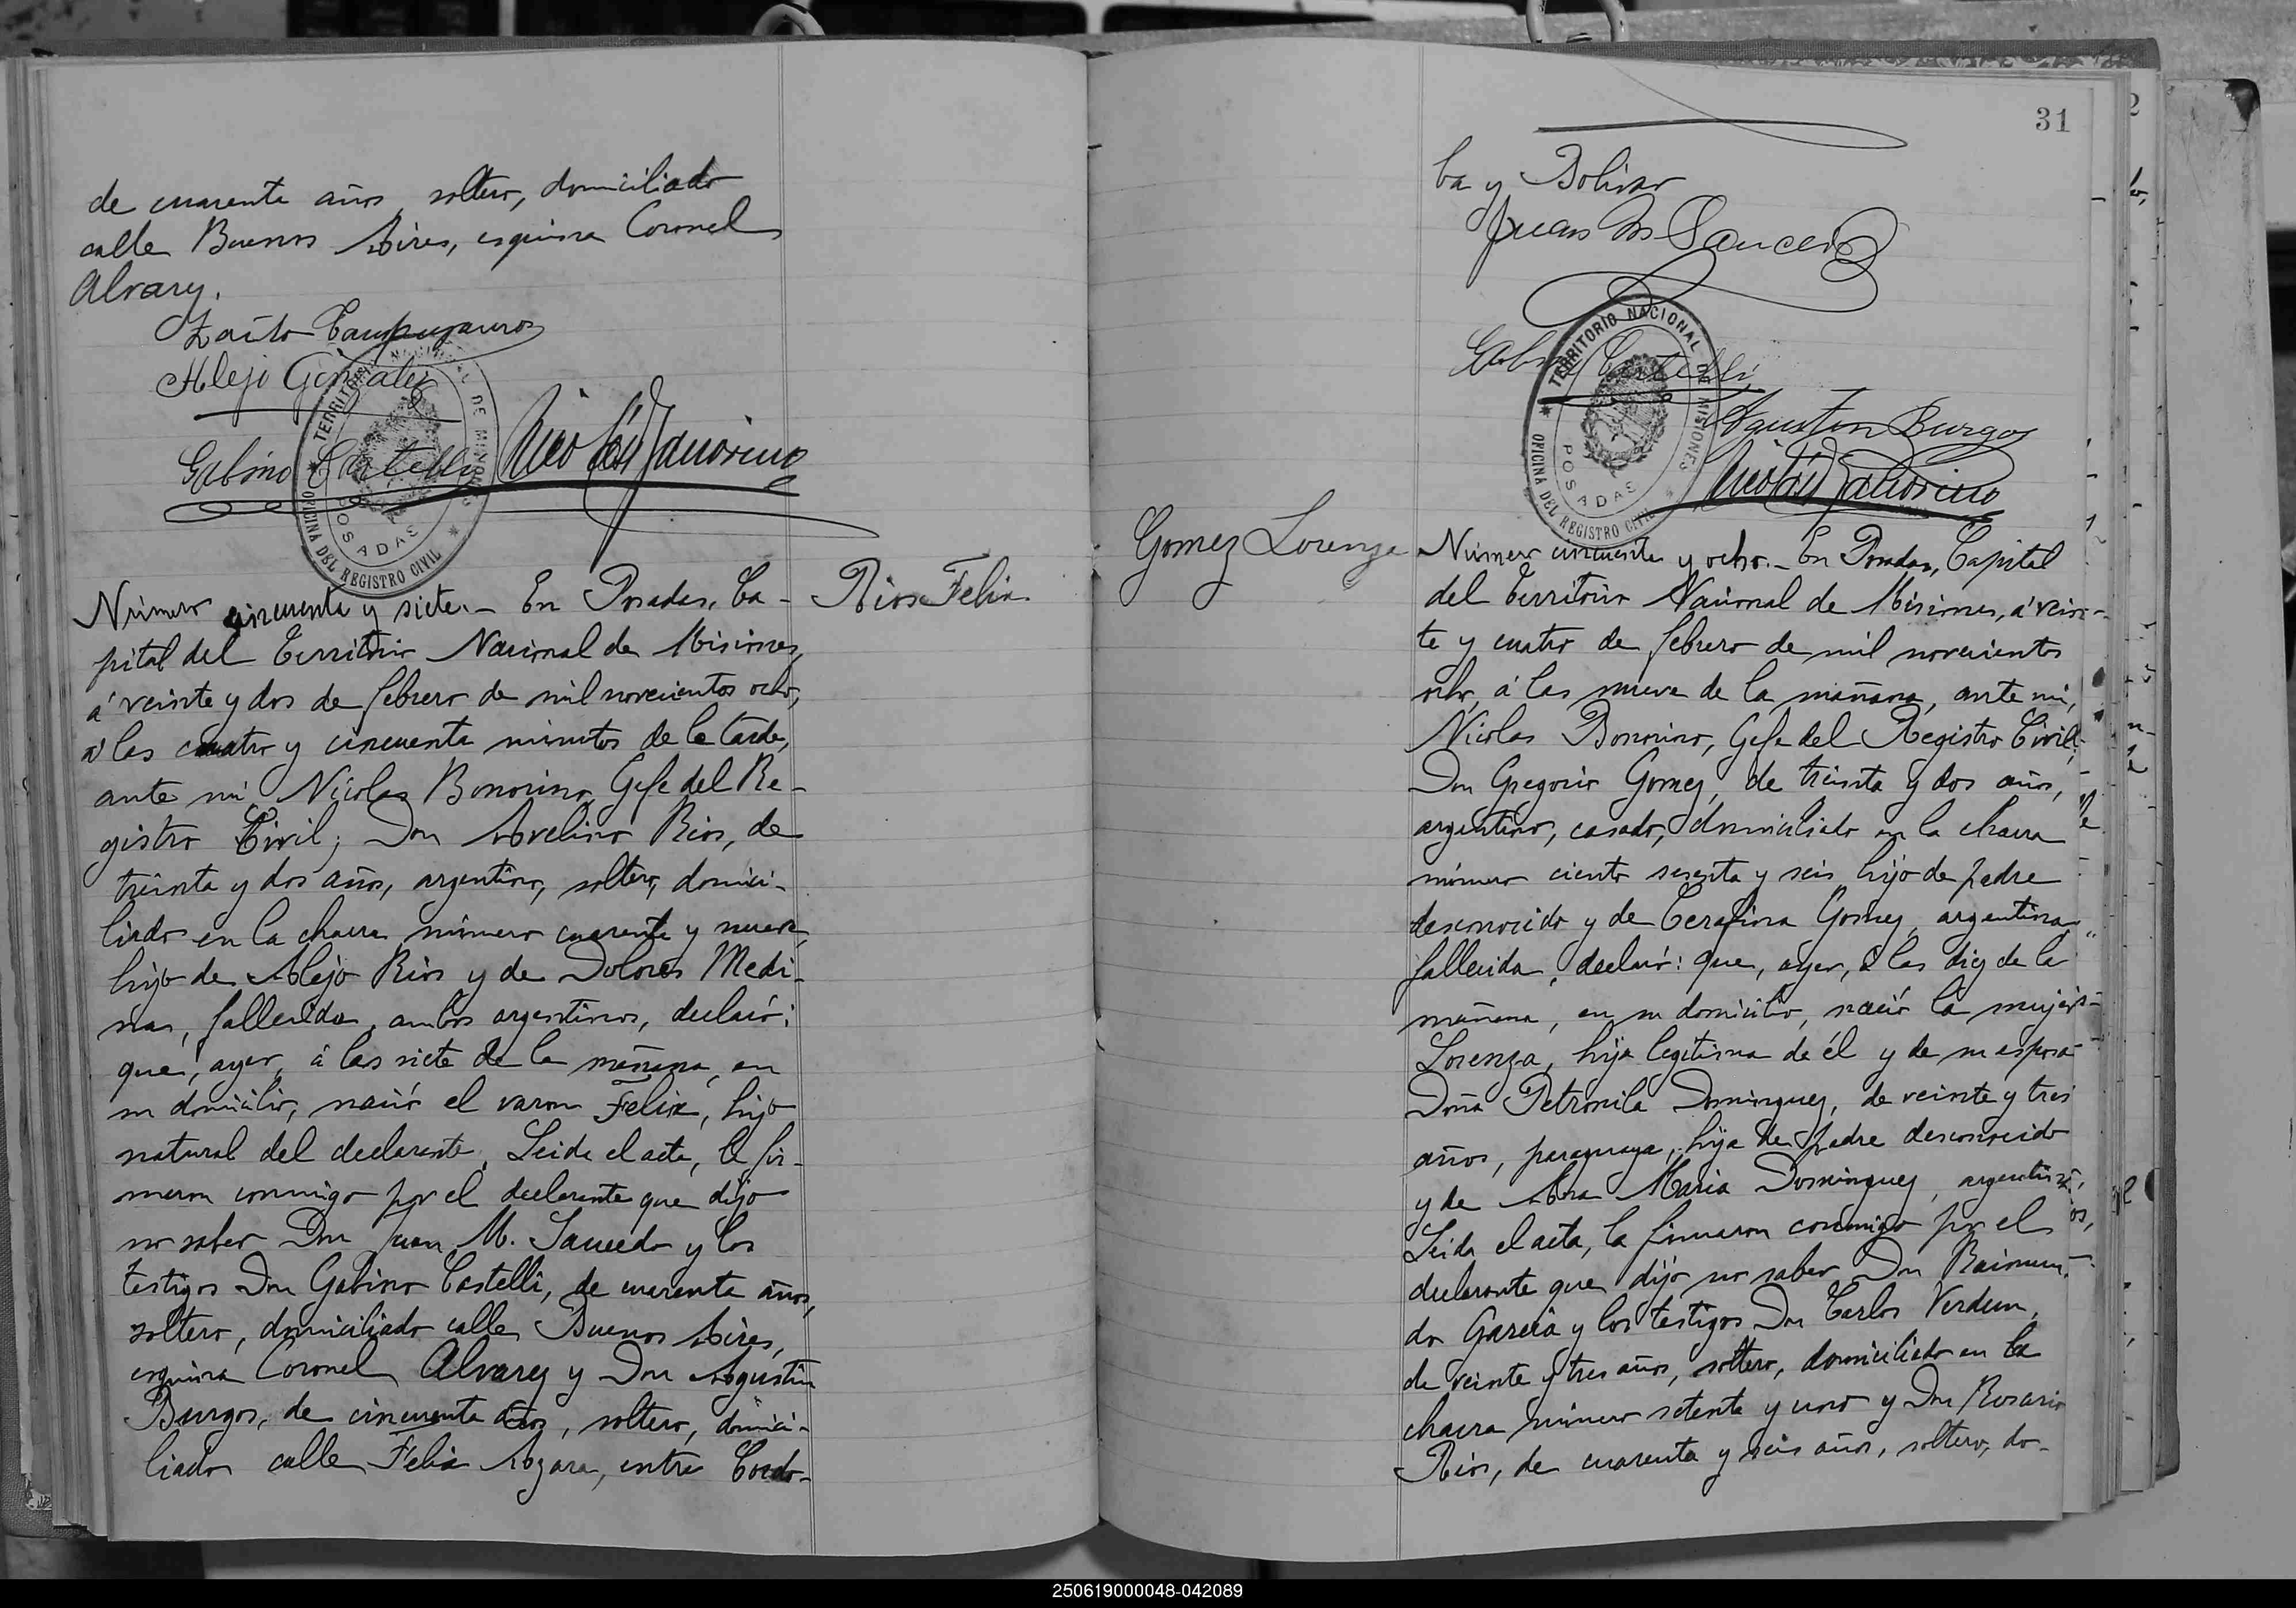 de cuarenta años, soltero, domiciliado
calle Buenos Aires, esquina Coronel
Alvarez.
Alejo Gonzalez
Gabino Castelli Nicolás Bonorino
TERRITORIO NACIONAL DE MISIONES
OFICINA DEL REGISTRO CIVIL
POSADAS
Número cincuenta y siete.- En Posadas, Ca-
Rios Felix
pital del Territorio Nacional de Misiones,
á veinte y dos de febrero de mil novecientos ocho,
á las cuatro y cincuenta minutos de la tarde,
ante mi, Nicolas Bonorino, Gefe del Re-
gistro Civil; Don Avelino Rios, de
treinta y dos años, argentino, soltero, domici-
liado en la chacra número cuarenta y nueve,
hijo de Alejo Rios y de Dolores Medi-
na, fallecida, ambos argentinos, declaró:
que, ayer, á las siete de la mañana, en
su domicilio, nació el varon Felix, hijo
natural del declarante. Leida el acta, la fir-
maron conmigo por el declarante que dijo
no saber Don Juan M. Saucedo y los
testigos Don Gabino Castelli, de cuarenta años,
soltero, domiciliado calle Buenos Aires,
esquina Coronel Alvarez y Don Agustin
Burgos, de cincuenta años, soltero, domici-
liado calle Felix Azara, entre Cordo-
31
ba y Bolivar
Juan M. Saucedo
Gabino Castelli
Agustin Burgos
Nicolás Bonorino
TERRITORIO NACIONAL DE MISIONES
OFICINA DEL REGISTRO CIVIL
POSADAS
Gomez Lorenza
Número cincuenta y ocho.- En Posadas, Capital
del Territorio Nacional de Misiones, á vein-
te y cuatro de febrero de mil novecientos
ocho, á las nueve de la mañana, ante mi,
Nicolas Bonorino, Gefe del Registro Civil;
Don Gregorio Gomez, de treinta y dos años,
argentino, casado, domiciliado en la chacra
número ciento sesenta y seis hijo de padre
desconocido y de Cerafina Gomez, argentina,
fallecida, declaró: que, ayer, á las diez de la
mañana, en su domicilio, nació la mujer
Lorenza, hija legitima de él y de su esposa
Doña Petronila Dominguez, de veinte y tres
años, paraguaya, hija de padre desconocido
y de Ana Maria Dominguez, argentina.
Leida el acta, la firmaron conmigo por el
declarante que dijo no saber Don Raimun-
do Garcia y los testigos Don Carlos Verdun,
de veinte y tres años, soltero, domiciliado en la
chacra número setenta y uno y Don Rosario
Rios, de cuarenta y seis años, soltero, do-
250619000048-042089